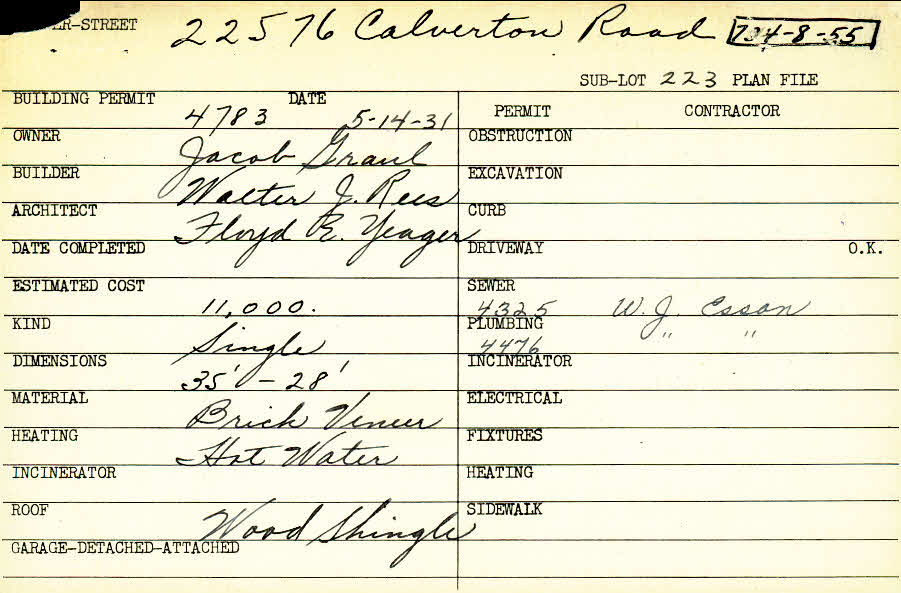 ER-STREET 22576 Calverton Road 734-8-55
SUB-LOT 223 PLAN FILE
BUILDING PERMIT 4783 DATE 5-14-31
PERMIT CONTRACTOR
OWNER Jacob Graul
OBSTRUCTION
BUILDER Walter J. Rees
EXCAVATION
ARCHITECT Floyd E. Yeager
CURB
DATE COMPLETED
DRIVEWAY O.K.
ESTIMATED COST 11,000.
SEWER 4325 W. J. Esson
KIND Single
PLUMBING 4476 " "
DIMENSIONS 35' - 28'
INCINERATOR
MATERIAL Brick Veneer
ELECTRICAL
HEATING Hot Water
FIXTURES
INCINERATOR
HEATING
ROOF Wood Shingle
SIDEWALK
GARAGE-DETACHED-ATTACHED